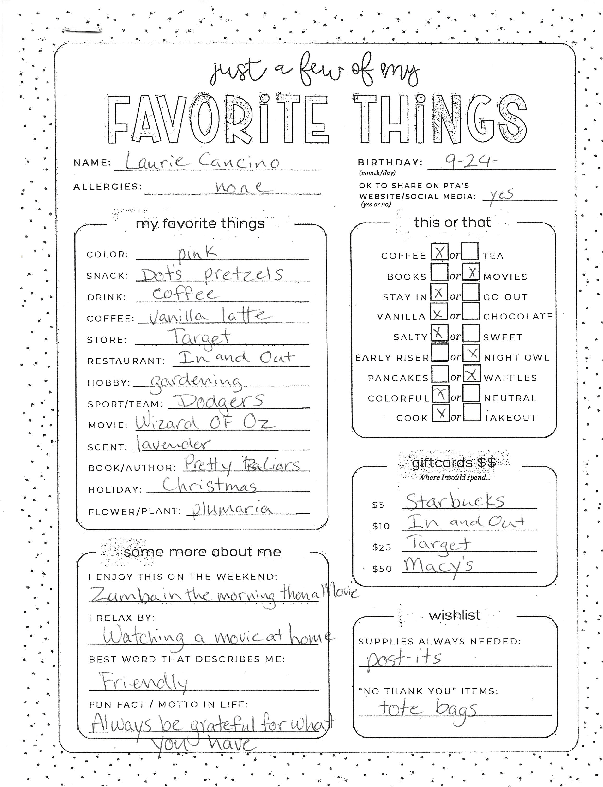 just a few of my
FAVORITE THINGS
NAME: Laurie Cancino
ALLERGIES: none
BIRTHDAY: 9-24-
(month/day)
OK TO SHARE ON PTA'S
WEBSITE/SOCIAL MEDIA: yes
(yes or no)
my favorite things
COLOR: pink
SNACK: Dots pretzels
DRINK: coffee
COFFEE: vanilla latte
STORE: Target
RESTAURANT: In and Out
HOBBY: gardening
SPORT/TEAM: Dodgers
MOVIE: Wizard OF Oz
SCENT: lavender
BOOK/AUTHOR: Pretty Liars
HOLIDAY: Christmas
FLOWER/PLANT: plumaria
this or that
COFFEE X or TEA
BOOKS or X MOVIES
STAY IN X or GO OUT
VANILLA X or CHOCOLATE
SALTY X or SWEET
EARLY RISER or X NIGHT OWL
PANCAKES or X WAFFLES
COLORFUL X or NEUTRAL
COOK X or TAKEOUT
giftcards $$
Where I would spend...
$5 Starbucks
$10 In and Out
$25 Target
$50 Macy's
some more about me
I ENJOY THIS ON THE WEEKEND:
Zumba in the morning then a Movie
I RELAX BY:
Watching a movie at home
BEST WORD THAT DESCRIBES ME:
Friendly
FUN FACT / MOTTO IN LIFE:
Always be grateful for what
you have
wishlist
SUPPLIES ALWAYS NEEDED:
post-its
"NO THANK YOU" ITEMS:
tote bags